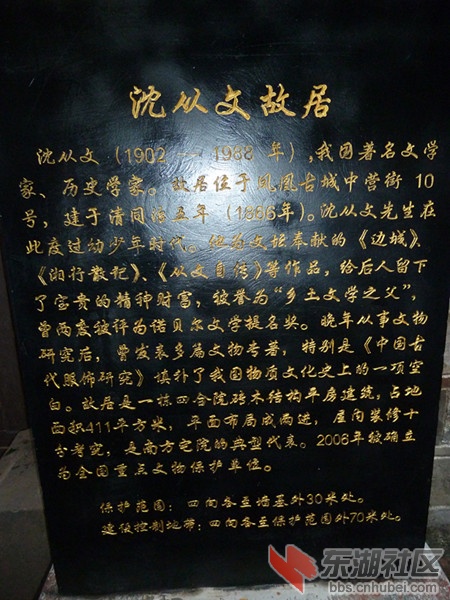 沈从文故居
沈从文(1902 — 1988 年),我国著名文学
家、历史学家。故居位于凤凰古城中营街 10
号,建于清同治五年(1866年)。沈从文先生在
此度过幼少年时代。他为文坛奉献的《边城》、
《湘行散记》、《从文自传》等作品,给后人留下
了宝贵的精神财富,被誉为“乡土文学之父”,
曾两度被评为诺贝尔文学提名奖。晚年从事文物
研究后,曾发表多篇文物专著,特别是《中国古
代服饰研究》填补了我国物质文化史上的一项空
白。故居是一栋四合院砖木结构平房建筑,占地
面积411平方米,平面布局成两进,屋内装修十
分考究,是南方宅院的典型代表。2006年被确立
为全国重点文物保护单位。
保护范围:四向各至墙基外30米处。
建设控制地带:四向各至保护范围外70米处。
东湖社区
bbs.cnhubei.com